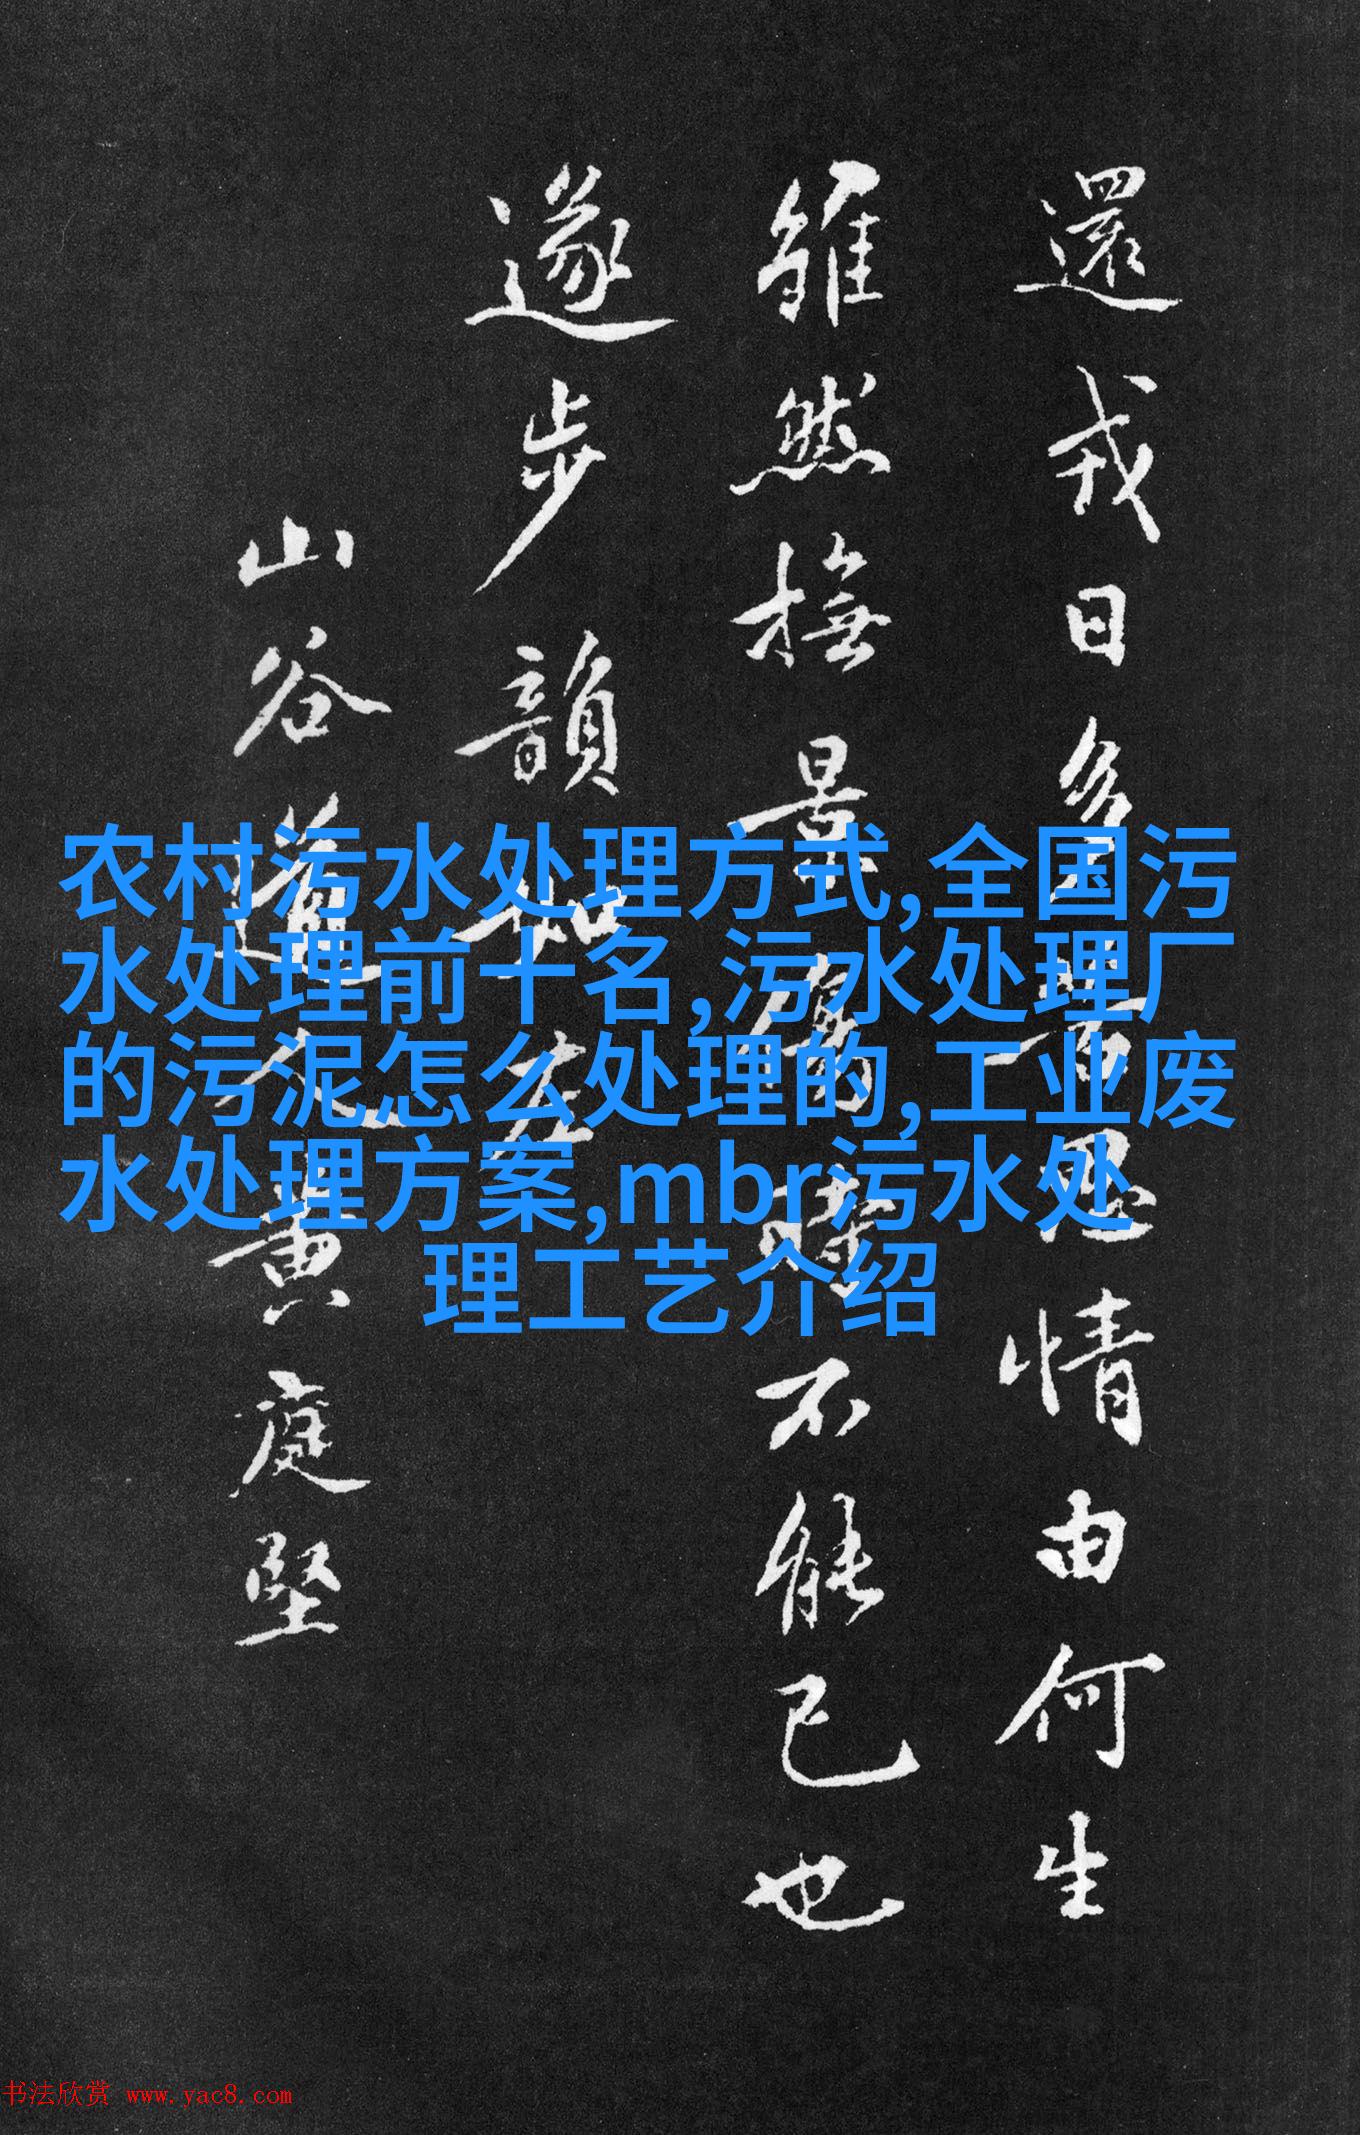 還戎日多皆思情由何生
雖然撫景傷時不能已也
遂步韻和左
山谷道人黄庭堅
农村污水处理方式,全国污
水处理前十名,污水处理厂
的污泥怎么处理的,工业废
水处理方案,mbr污水处
理工艺介绍
书法欣赏 www.yac8.com